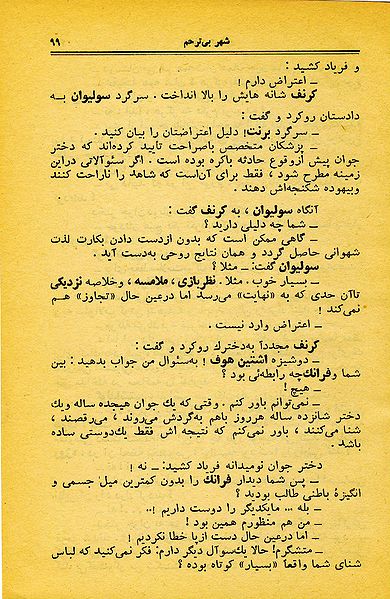 شهر بی‌ترحم
۹۹
و فریاد کشید :
ــ اعتراض دارم !
کرنف شانه هایش را بالا انداخت . سرگرد سولیوان بــه
دادستان روکرد و گفت :
ــ سرگرد برنت! دلیل اعتراضتان را بیان کنید .
ــ پزشکان متخصص باصراحت تأیید کرده‌اند که دختر
جوان پیش ازوقوع حادثه باکره بوده است . اگر سئوالاتی دراین
زمینه مطرح شود ، فقط برای آن‌است که شاهد را ناراحت کنند
وبیهوده شکنجه‌اش دهند .
آنگاه سولیوان ، به کرنف گفت :
ــ شما چه دلیلی دارید ؟
ــ گاهی ممکن است که بدون ازدست دادن بکارت لذت
شهوانی حاصل گردد و همان نتایج روحی به‌دست آید .
سولیوان گفت: ــ مثلا ؟
ــ بسیار خوب . مثلا . نظربازی ، ملامسه ، وخلاصه نزدیکی
تاآن حدی که به «نهایت» می‌رسد اما درعین حال «تجاوز» هــم
نمی‌کند !
ــ اعتراض وارد نیست .
کرنف مجدداً به‌دخترك روکرد و گفت :
ــ دوشیزه اشتین هوف ! به‌سئوال من جواب بدهید : بین
شما وفرانك‌چه رابطه‌ئی بود ؟
ــ هیچ !
ــ نمی‌توانم باور کنم . وقتی که یك جوان هیجده ساله ویك
دختر شانزده ساله هرروز باهم به‌گردش می‌روند ، می‌رقصند ،
شنا می‌کنند ، باور نمی‌کنم که نتیجه اش فقط یك‌دوستی ساده
باشد .
دختر جوان نومیدانه فریاد کشید: ــ نه !
ــ پس شما دیدار فرانك را بدون کمترین میل جسمی و
انگیزهٔ باطنی طالب بودید ؟
ــ بله ... مایکدیگر را دوست داریم !..
ــ من هم منظورم همین بود !
ــ اما درعین حال دست ازپا خطا نکردیم !
ــ متشکرم! حالا یك‌سوآل دیگر دارم: فکر نمی‌کنید که لباس
شنای شما واقعاً «بسیار» کوتاه بوده ؟